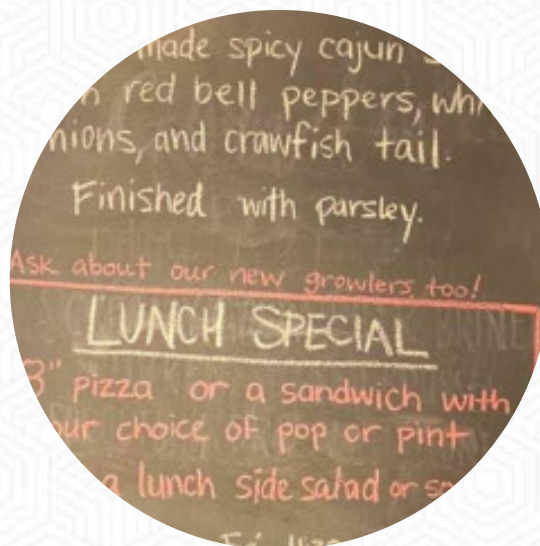 made spicy cajun
red bell peppers,
and crawfish tail.
Finished with parsley.
Ask about our new growlers, too!
LUNCH SPECIAL
8" pizza or a sandwich with
choice of pop or pint
a lunch side salad or